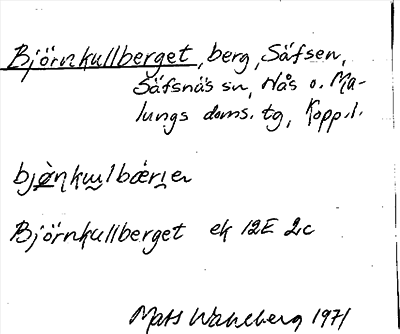 Björnkullberget, berg, Säfsen,
Säfsnäs sn, Nås o. Ma-
lungs doms. tg, Kopp.l.
Björnkullberget ek 12E 2c
Mats Wahlberg 1971